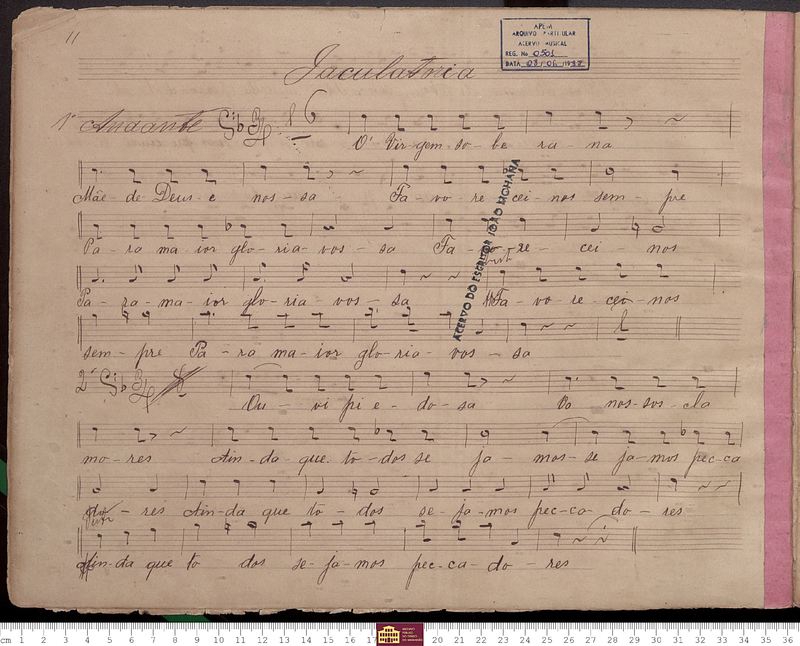 11
APEM
ARQUIVO PARTICULAR
ACERVO MUSICAL
REG. No 0501
DATA 03/06/1992
Jaculatoria
1ª Andante
O' Vir-gem so-be ra-na
Mãe-de Deus-e nos-sa Fa-vo-re cei-nos sem-pre
Pa-ra ma-ior glo-ria-vos-sa Fa-vo-re-cei-nos
Pa-ra-ma-ior glo-ria-vos-sa Fa-vo-re-cei-nos
sem-pre Pa-ra ma-ior glo-ria-vos-sa
ACERVO DO ESCRITOR JOÃO MOHANA
2ª
Ou-vi pi e-do-sa Os nos-sos-cla
mo-res Ain-da-que-to-dos se ja-mos-se ja-mos pec-ca
do-res Ain-da que to-dos se-ja-mos pec-ca-do-res
Ain-da que to dos se-ja-mos pec-ca-do-res
cm 1 2 3 4 5 6 7 8 9 10 11 12 13 14 15 16 17 20 21 22 23 24 25 26 27 28 29 30 31 32 33 34 35 36